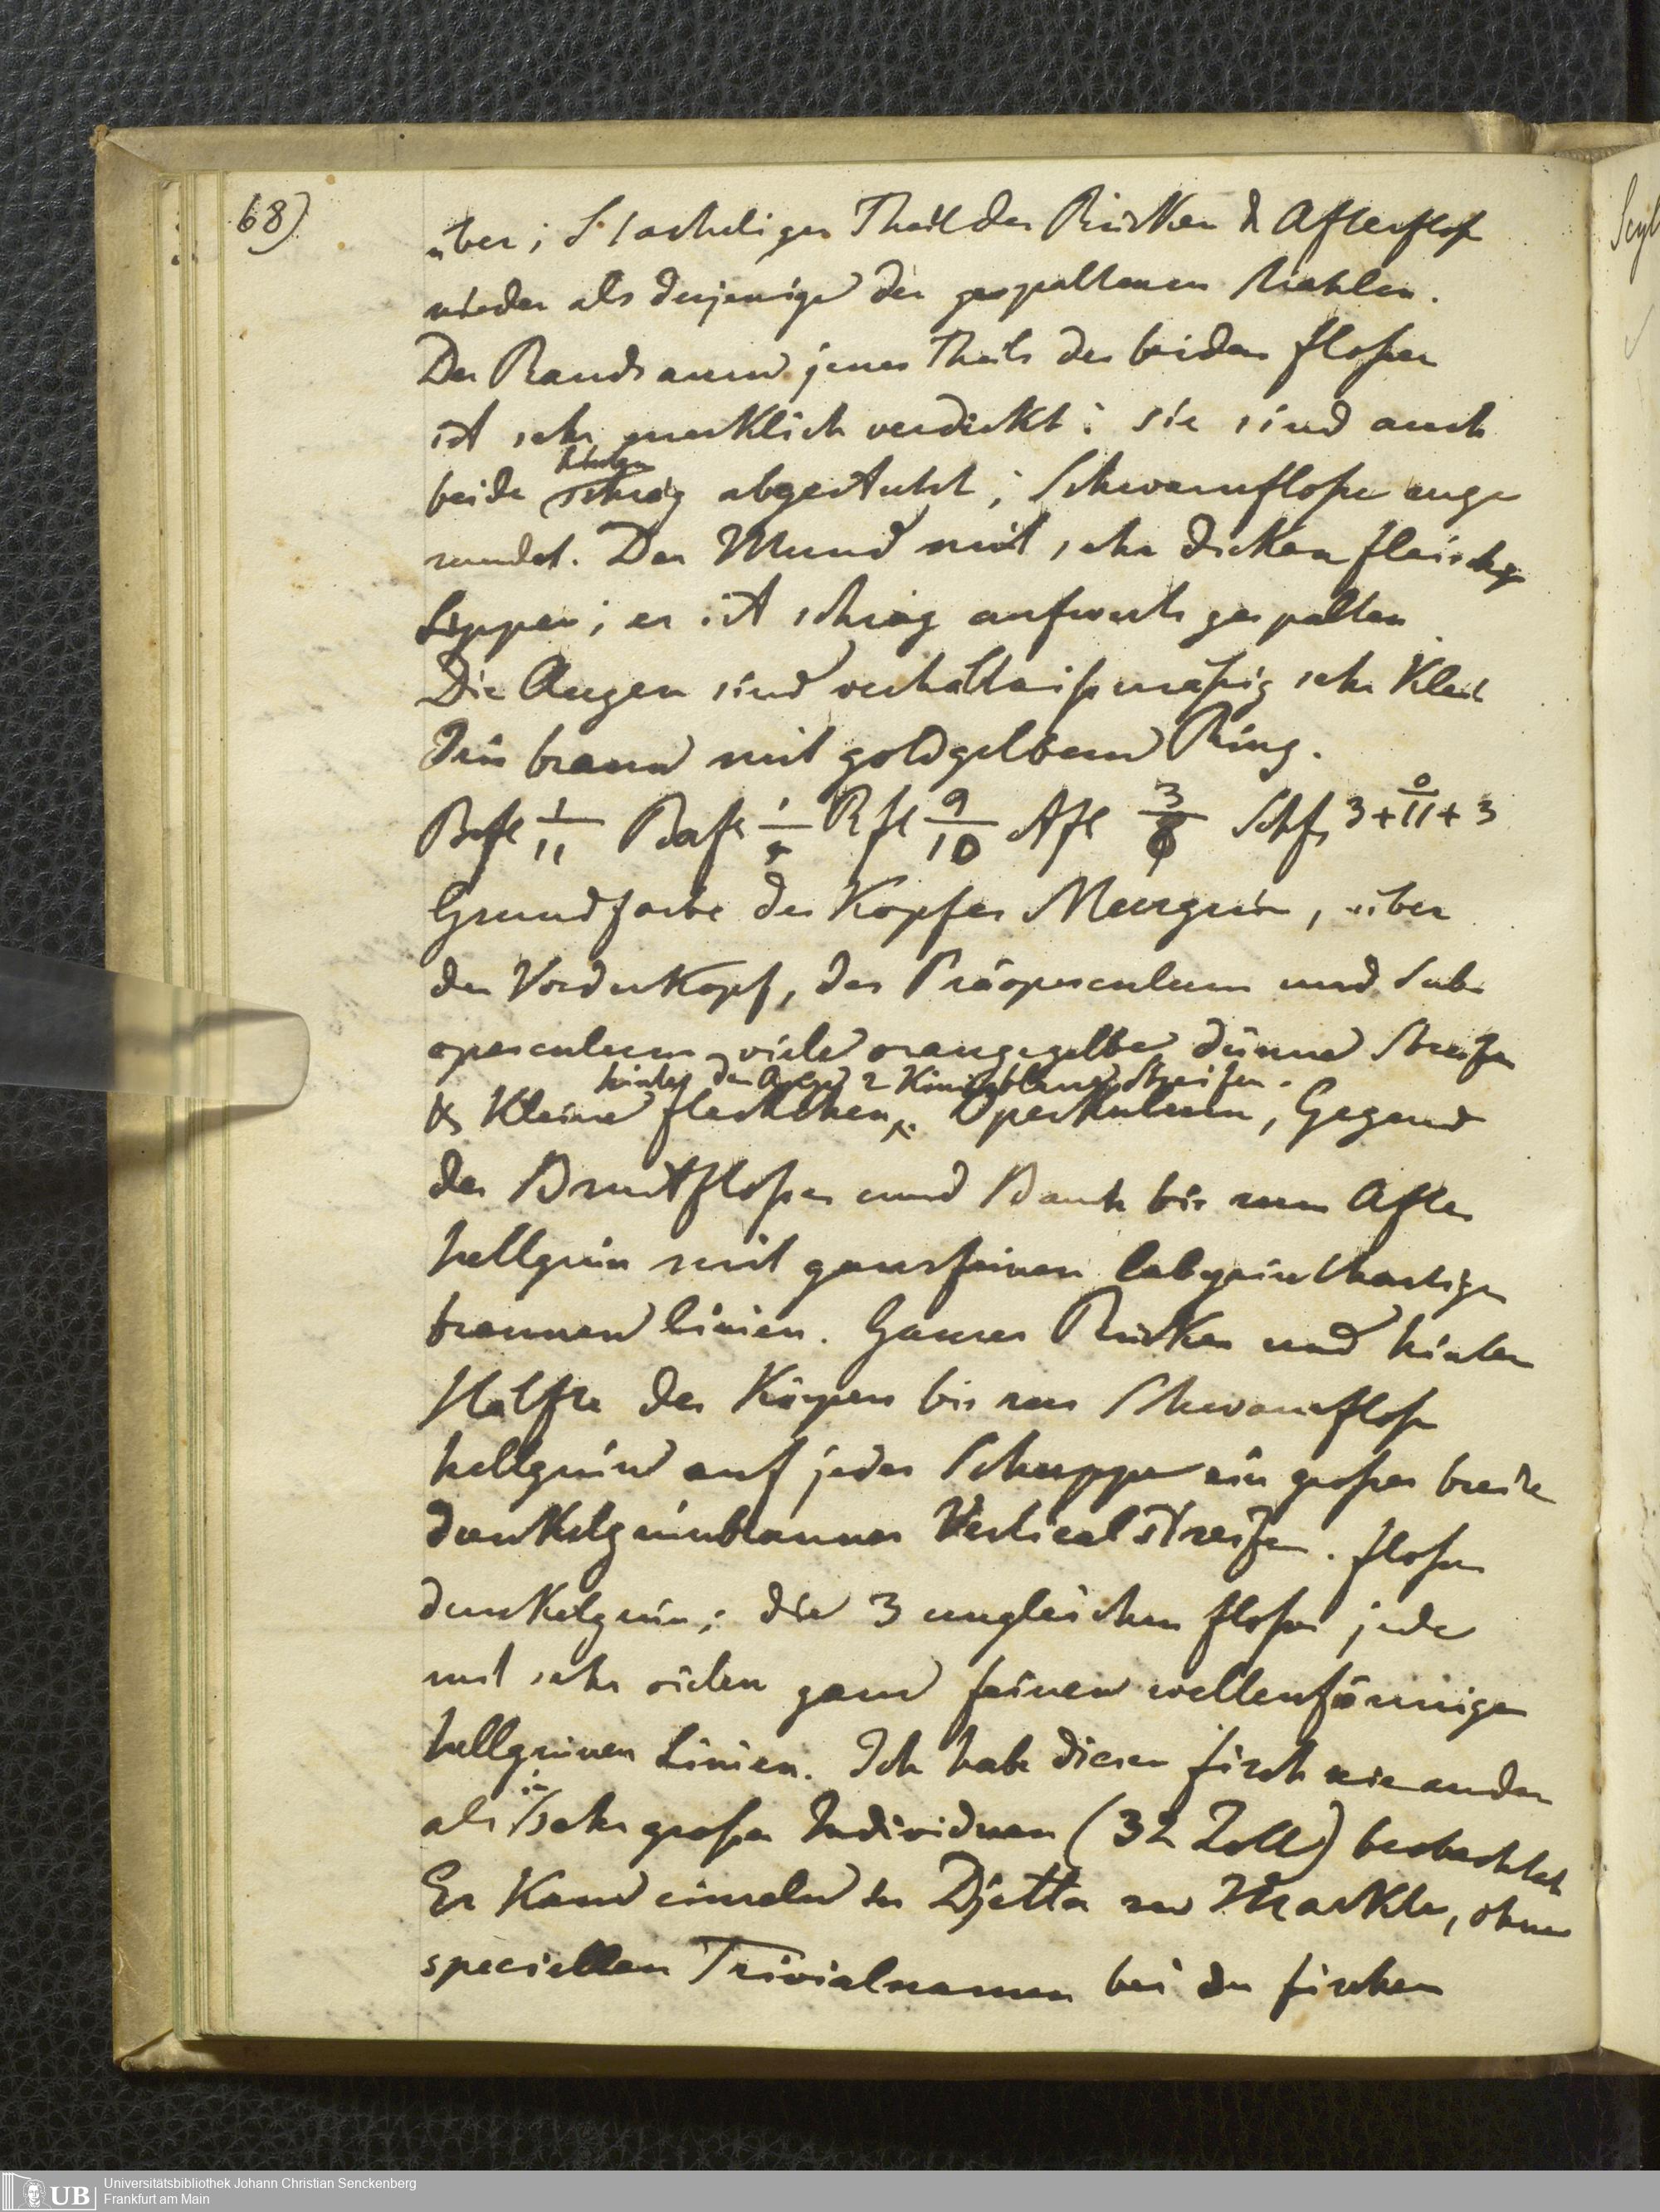 68)
über; Stacheliger Theil der Rücken & Afterfloß
nieder als derjenige der gespaltenen Strahlen.
Der Rand saum jenes Theils der beiden Floßen
ist sehr merklich verdickt: sie sind auch
beide schräg abgestutzt; Schwanzfloße auge
rundet. Der Mund mit sehr dicken fleischg
Lippen; er ist schräg aufwerts gespalten
Die Augen sind verhältnißmäßig sehr Klein
Iris braun mit goldgelbem Ring.
Brfl 1/11 Bafl 1/5 Rfl 9/10 Afl 3/8 Schfl 3+0/11+3
Grundfarbe des Kopfes Meergrün, über
den Vorderkopf, das Präoperculum und Sub
operculum viele orangegelbe dünne Streifen
hinter dem Auge 2 Königsblaue Streifen.
& Kleine Fleckchen. Operkulum, Gegend
der Brustfloßen und Bauch bis zum After
hellgrün mit ganz feinen labyrinthartigen
braunen Linien. Ganzer Rücken und hinter
Hälfte des Körpers bis zur Schwanzfloß
hellgrün auf jeder Schuppe ein großer breiter
dunkelgrünbrauner Verticalstreifen. Floßen
dunkelgrün; die 3 ungleichen Floßen jede
mit sehr vielen ganz feinen wellenförmigen
hellgrünen Linien. Ich habe diesen Fisch nie anders
als in sehr großen Individuen (32 Zoll) beobachtet
Er Kam einzeln in Djetta zu Markte, ohne
speciellen Trivialnamen bei den Fischern
Scyl
Universitätsbibliothek Johann Christian Senckenberg
Frankfurt am Main
UB